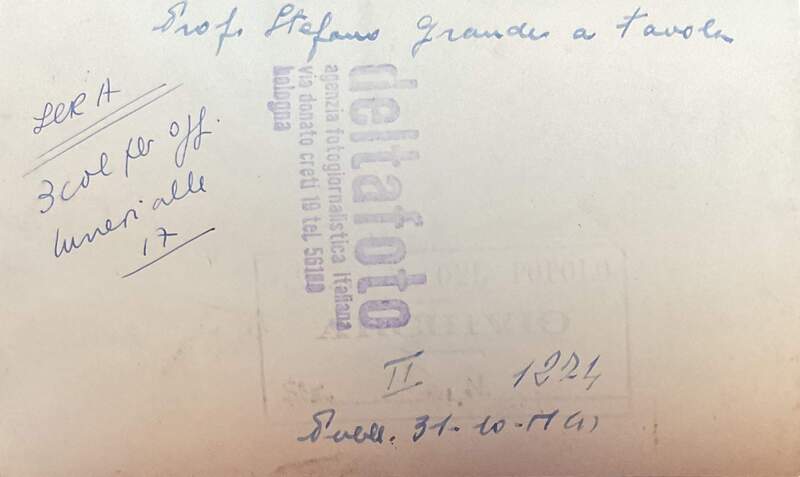 Prof. Stefano Grandi a tavola
SERA
3 col per off.
lunedi alle
17
deltafoto
agenzia fotogiornalistica italiana
via donato creti 19 tel. 56180
bologna
II 1274
Pubbl. 31-10-